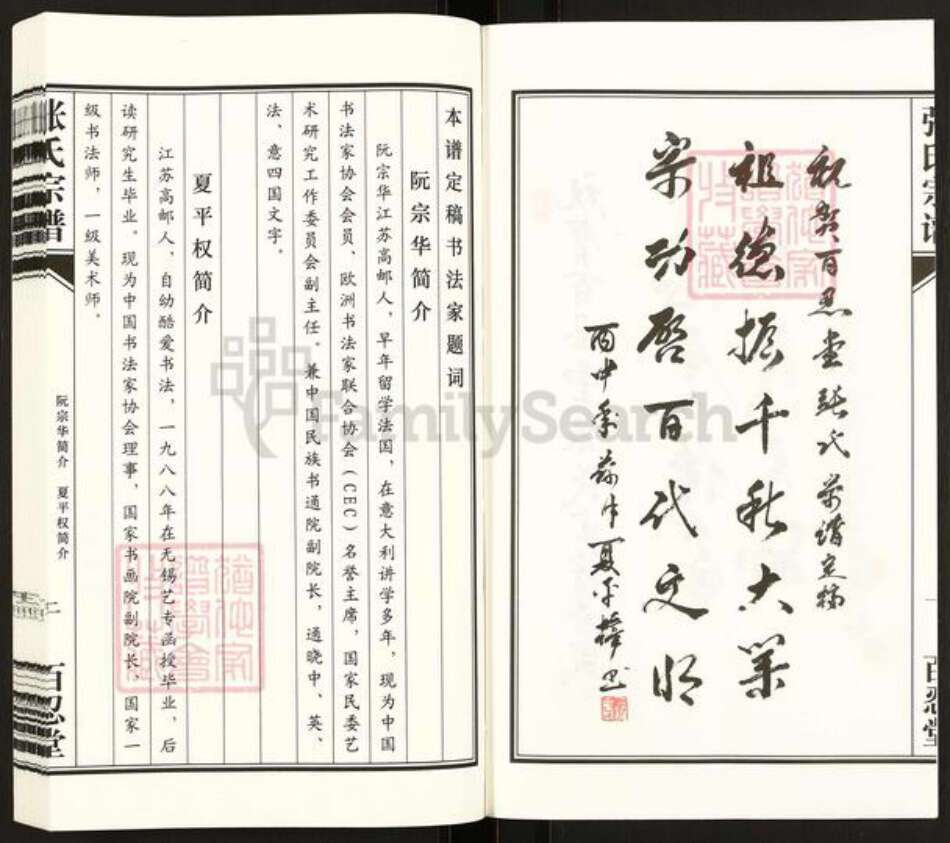 祝贺百忍堂张氏宗谱定稿
祖德振千秋大业
宗功启百代文明
丙申季夏 夏平权书
张氏宗谱
百忍堂
本谱定稿书法家题词
阮宗华简介
阮宗华江苏高邮人，早年留学法国，在意大利讲学多年，现为中国
书法家协会会员、欧洲书法家联合协会（CEC）名誉主席，国家民委艺
术研究工作委员会副主任。兼中国民族书通院副院长，通晓中、英、
法、意四国文字。
夏平权简介
江苏高邮人，自幼酷爱书法，一九八八年在无锡艺专函授毕业，后
读研究生毕业。现为中国书法家协会理事、国家书画院副院长、国家一
级书法师，一级美术师。
张氏宗谱
阮宗华简介 夏平权简介
二
百忍堂
FamilySearch